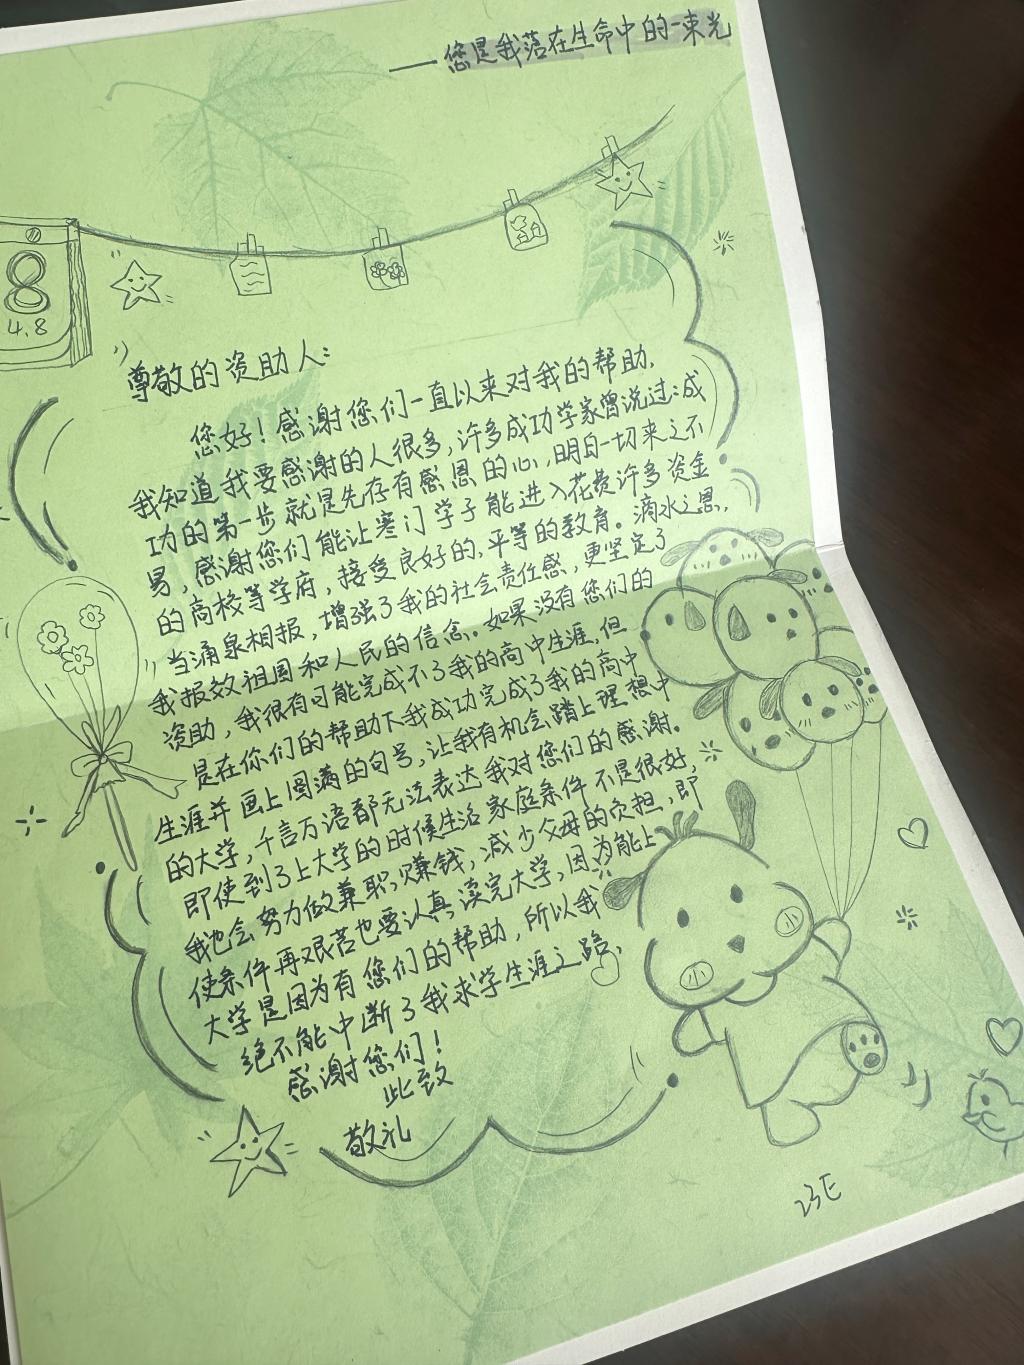 ——您是我落在生命中的一束光
8
4.8
尊敬的资助人:
您好!感谢您们一直以来对我的帮助,
我知道我要感谢的人很多,许多成功学家曾说过:成
功的第一步就是先存有感恩的心,明白一切来之不
易,感谢您们能让寒门学子能进入花费许多资金
的高校等学府,接受良好的,平等的教育。滴水之恩,
当涌泉相报,增强了我的社会责任感,更坚定了
我报效祖国和人民的信念。如果没有您们的
资助,我很有可能完成不了我的高中生涯,但
是在你们的帮助下我成功完成了我的高中
生涯并画上圆满的句号,让我有机会踏上理想中
的大学,千言万语都无法表达我对您们的感谢。
即使到了上大学的时候生活家庭条件不是很好,
我也会努力做兼职,赚钱,减少父母的负担,即
使条件再艰苦也要认真读完大学,因为能上
大学是因为有您们的帮助,所以我
绝不能中断了我求学生涯之路,
感谢您们!
此致
敬礼